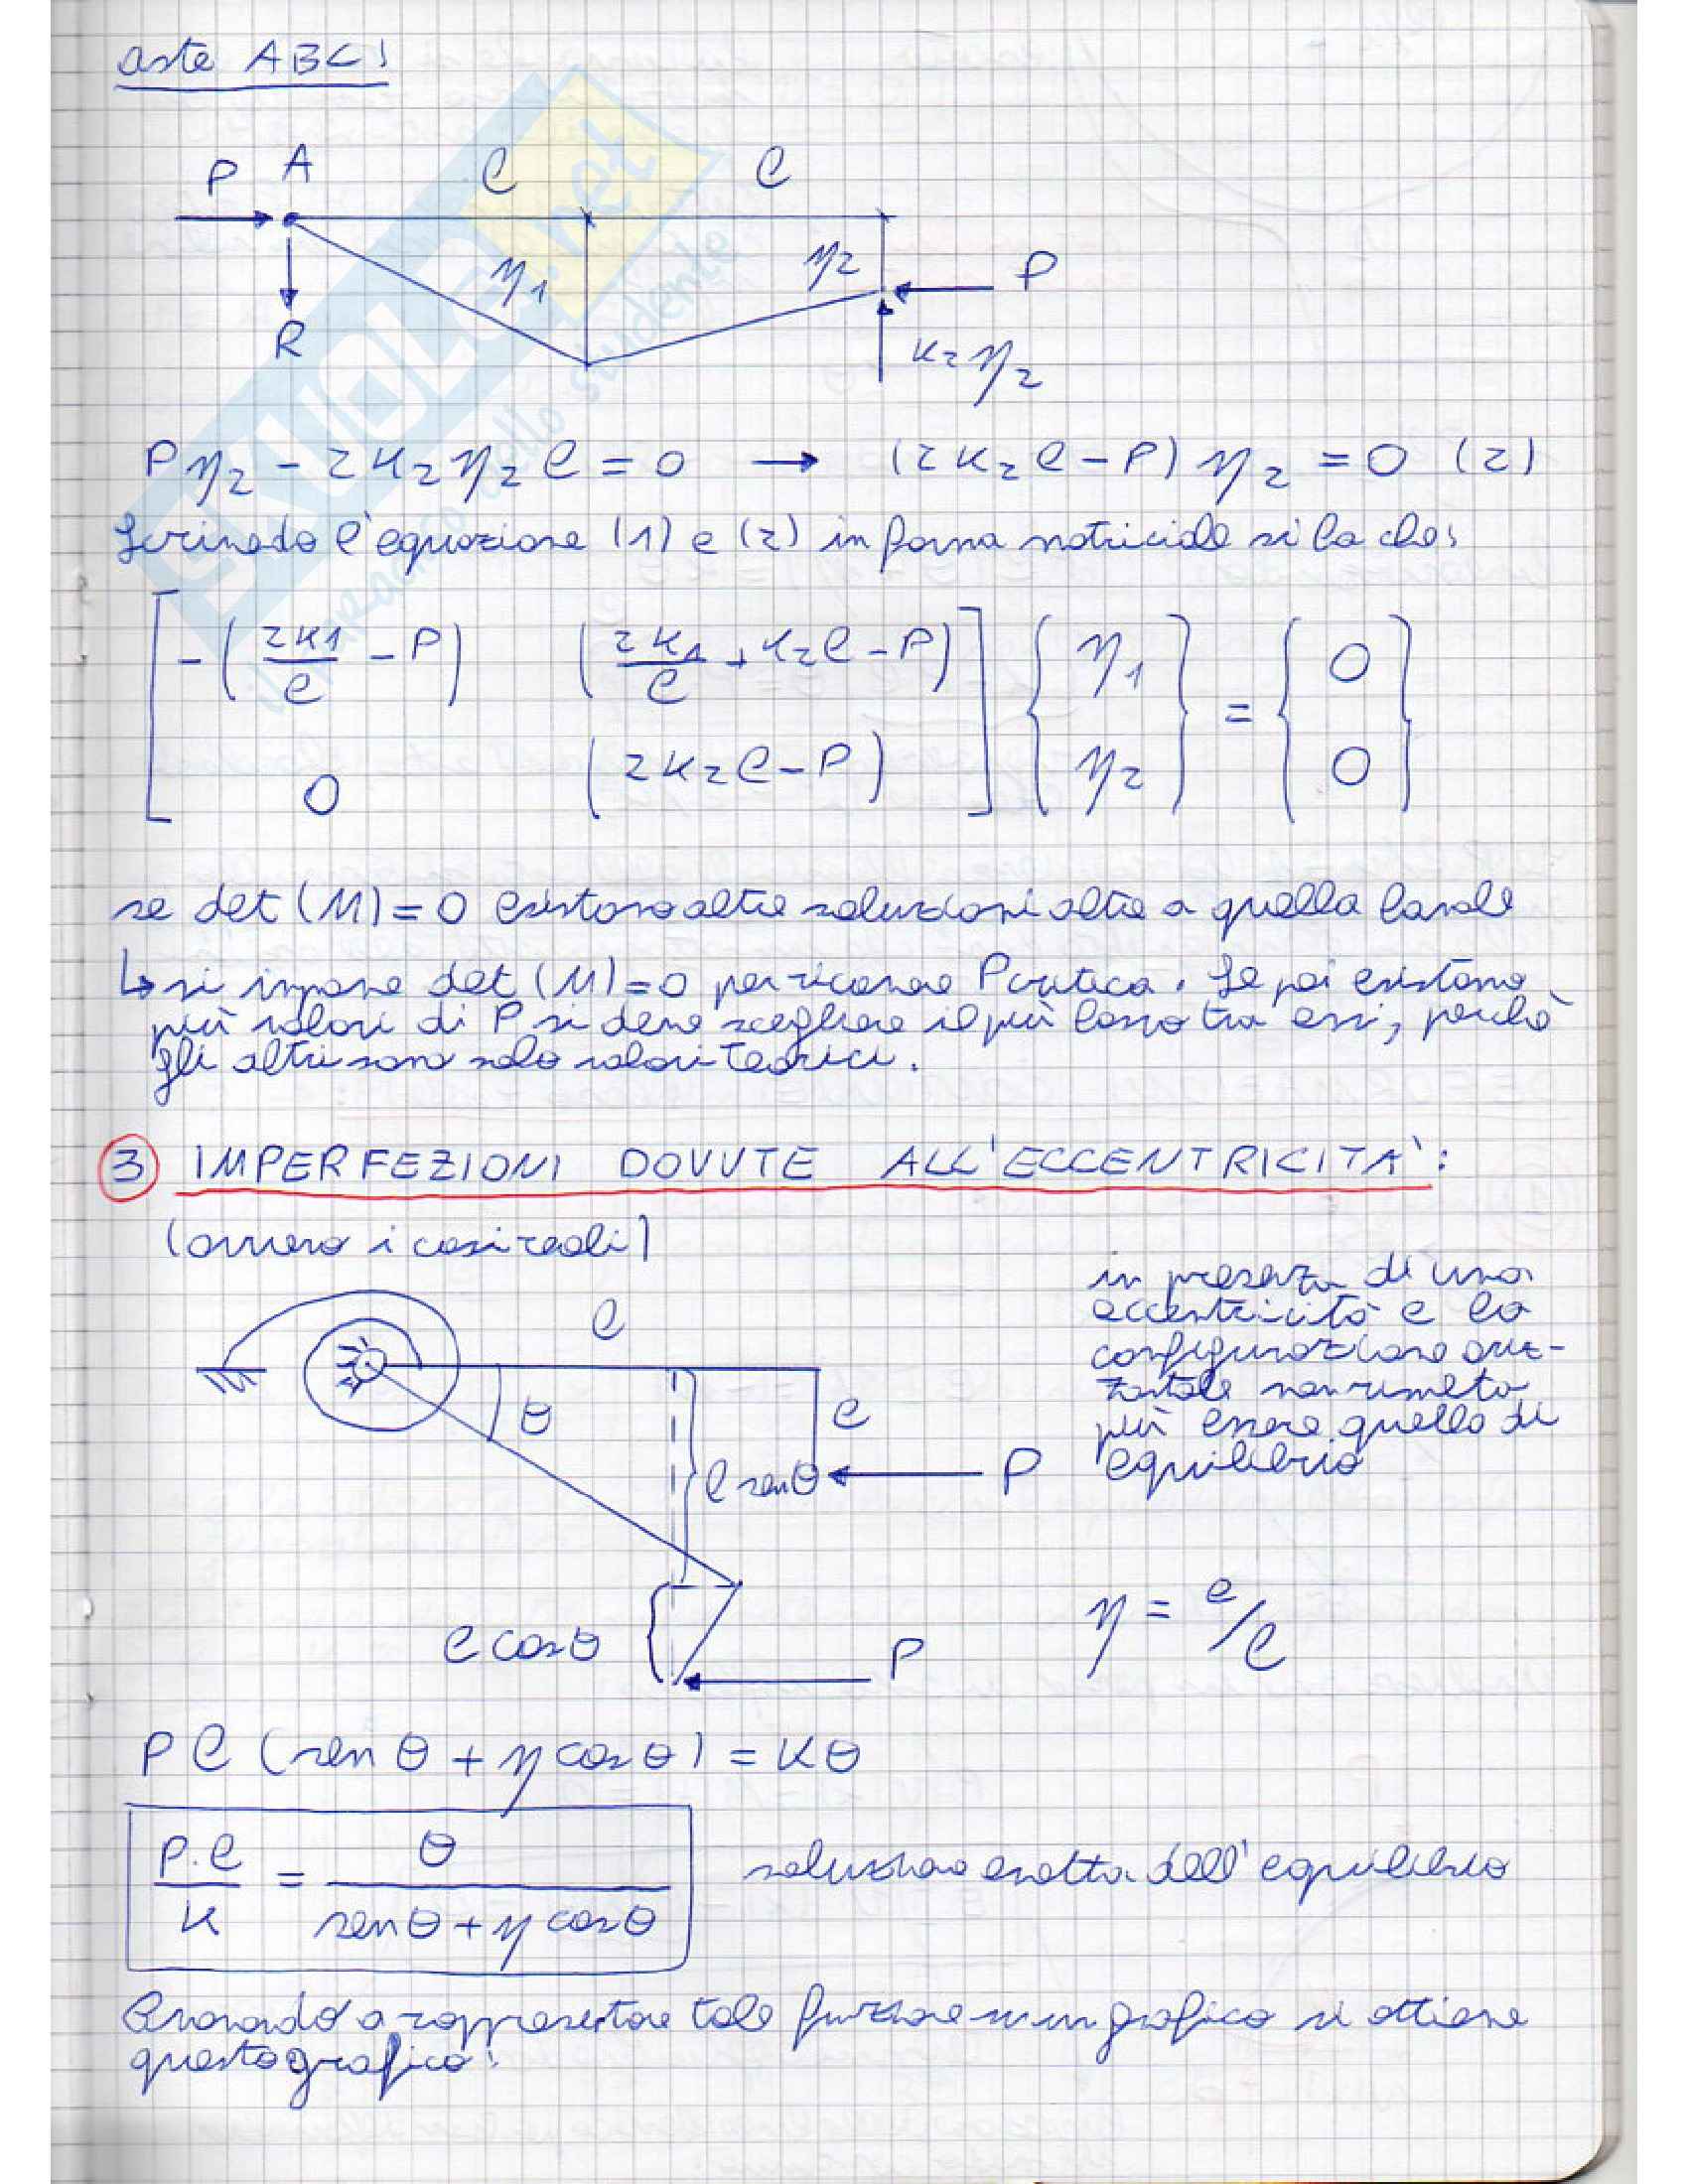 aste ABC:
P A ℓ ℓ
η1 η2 P
R k2 η2
Pη2 - 2k2η2ℓ = 0 → (2k2ℓ - P) η2 = 0 (2)
Scrivendo l'equazione (1) e (2) in forma matriciale si ha che:
[ -(2k1/ℓ - P) (2k1/ℓ + k2ℓ - P) ] { η1 } = { 0 }
[ 0 (2k2ℓ - P) ] { η2 } { 0 }
se det (M) = 0 esistono altre soluzioni oltre a quella banale
↳ si impone det (M) = 0 per ricavare P critica. Se poi esistono
più valori di P si deve scegliere il più basso tra essi, perché
gli altri sono solo valori teorici.
③ IMPERFEZIONI DOVUTE ALL'ECCENTRICITA':
(ovvero i casi reali)
in presenza di una
eccentricità e la
configurazione oriz-
zontale non risulta
più essere quella di
equilibrio
ℓ
θ e
ℓ senθ P
e cosθ P
η = e/ℓ
Pℓ (senθ + η cosθ) = kθ
P·ℓ/k = θ/(senθ + η cosθ) soluzione esatta dell'equilibrio
Andando a rappresentare tale funzione su un grafico si ottiene
questo grafico:
SKUOLA.net
il paradiso dello studente